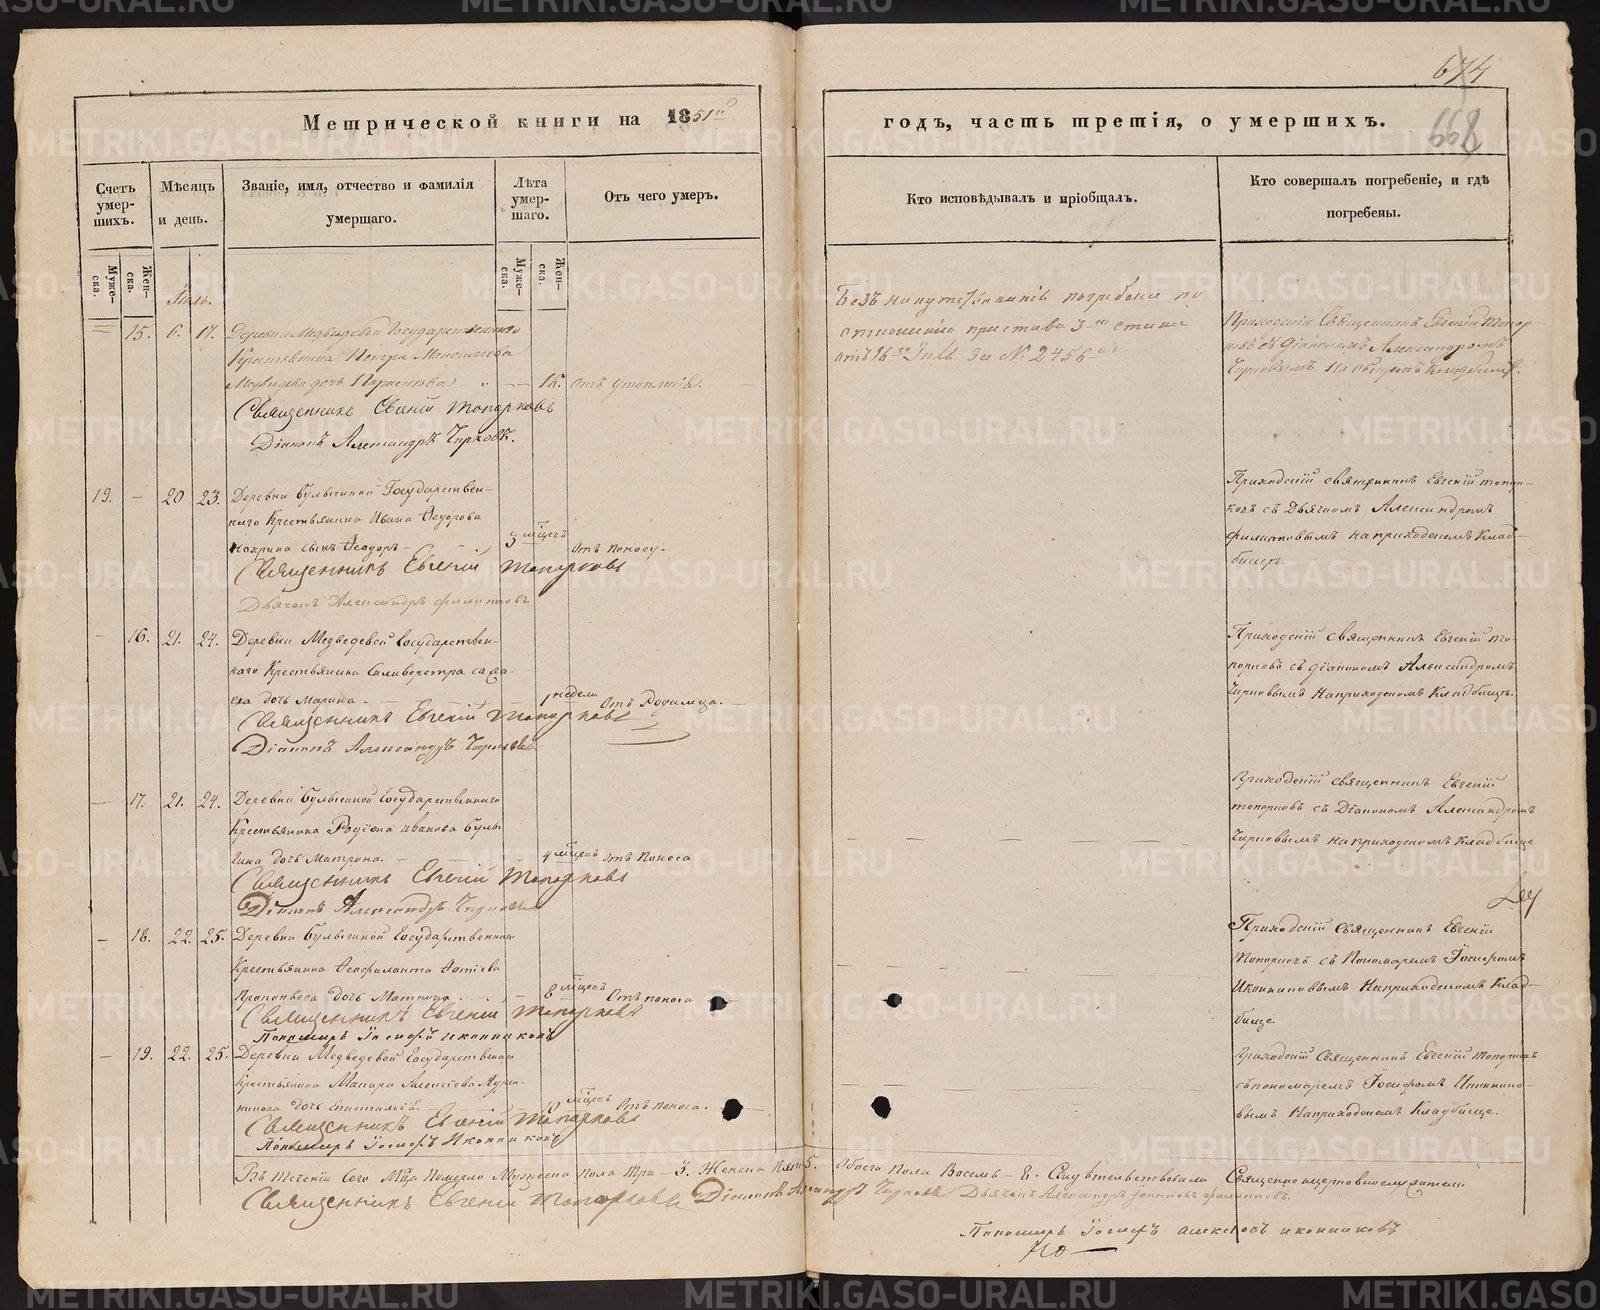 674
668
Метрической книги на 1851й
годъ, часть третія, о умершихъ.
Счетъ умер-шихъ.
Мѣсяцъ и день.
Званіе, имя, отчество и фамилія умершаго.
Лѣта умер-шаго.
Отъ чего умеръ.
Кто исповѣдывалъ и пріобщалъ.
Кто совершалъ погребеніе, и гдѣ погребены.
Муже-ска.
Жен-ска.
Муже-ска.
Жен-ска.
Іюль.
15. 6. 17. Деревни Медвѣдевой Государственнаго
Крестьянина Петра Максимова
Медвѣдева дочь — 16. отъ утопленія.
Священникъ Евгеній Топорковъ
Діаконъ Александръ Чирковъ.
Безъ напутствованія погребена по
отношенію пристава 3го стана
отъ 16го Іюля За № 2456
Приходскій Священникъ Евгеній Топор
ковъ съ Діакономъ Александромъ
Чирковымъ На общемъ кладбищѣ.
19. — 20 23. Деревни Булыгиной Государствен-
наго Крестьянина Ивана Ѳедорова
сынъ Ѳеодоръ — 3 мѣсяцъ Отъ поносу.
Священникъ Евгеній Топорковъ
Дьячекъ Александръ Филиповъ
Приходскій священникъ Евгеній Топор-
ковъ съ Дьячкомъ Александромъ
Филиповымъ на приходскомъ Клад-
бищѣ.
— 16. 21. 24. Деревни Медведевой Государствен-
наго Крестьянина Сильверстра
дочь Марина. — 1 недели Отъ Родимца.
Священникъ Евгеній Топорковъ
Діаконъ Александръ Чирковъ
Приходскій священникъ Евгеній То-
порковъ съ діакономъ Александромъ
Чирковымъ На приходскомъ Кладбищѣ.
— 17. 21. 24. Деревни Булыгиной Государственнаго
Крестьянина Родіона Иванова Булы
гина дочь Матрона. — 4 мѣсяцъ отъ поноса
Священникъ Евгеній Топорковъ
Діаконъ Александръ Чирковъ
Приходскій священникъ Евгеній
Топорковъ съ Діакономъ Александромъ
Чирковымъ На приходскомъ Кладбище
— 18. 22. 25. Деревни Булыгиной Государственнаго
Крестьянина Ѳеофилакта Фотіева
дочь Матрона. — 8 мѣсяцъ Отъ поноса
Священникъ Евгеній Топорковъ
Пономарь Іосифъ Иконниковъ
Приходскій Священникъ Евгеній
Топорковъ съ Пономаремъ Іосифомъ
Иконниковымъ На приходскомъ Клад-
бище.
— 19. 22. 25. Деревни Медведевой Государственнаго
Крестьянина Макара Алексіева
дочь Епистимія. — 10 мѣсяцъ Отъ поноса.
Священникъ Евгеній Топорковъ
Пономарь Іосифъ Иконниковъ
Приходскій Священникъ Евгеній Топорковъ
съ пономаремъ Іосифомъ Иконнико-
вымъ На приходскомъ Кладбище.
Въ теченіи Сего Мца Померло Мужеска пола три — 3. Женска пять 5. Обоего Пола Восемь — 8. Свидѣтельствовали Священно церковнослужители
Священникъ Евгеній Топорковъ Діаконъ Александръ Чирковъ Дьячекъ Александръ Филиповъ.
Пономарь Іосифъ Алексѣевъ Иконниковъ
METRIKI.GASO-URAL.RU